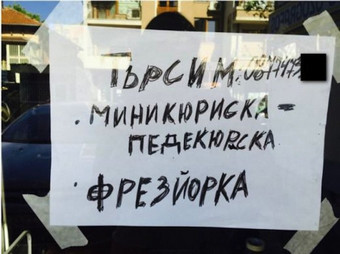 ТЪРСИМ:
· МИНИКЮРИСКА -
ПЕДЕКЮРСКА
· ФРЕЗЙОРКА